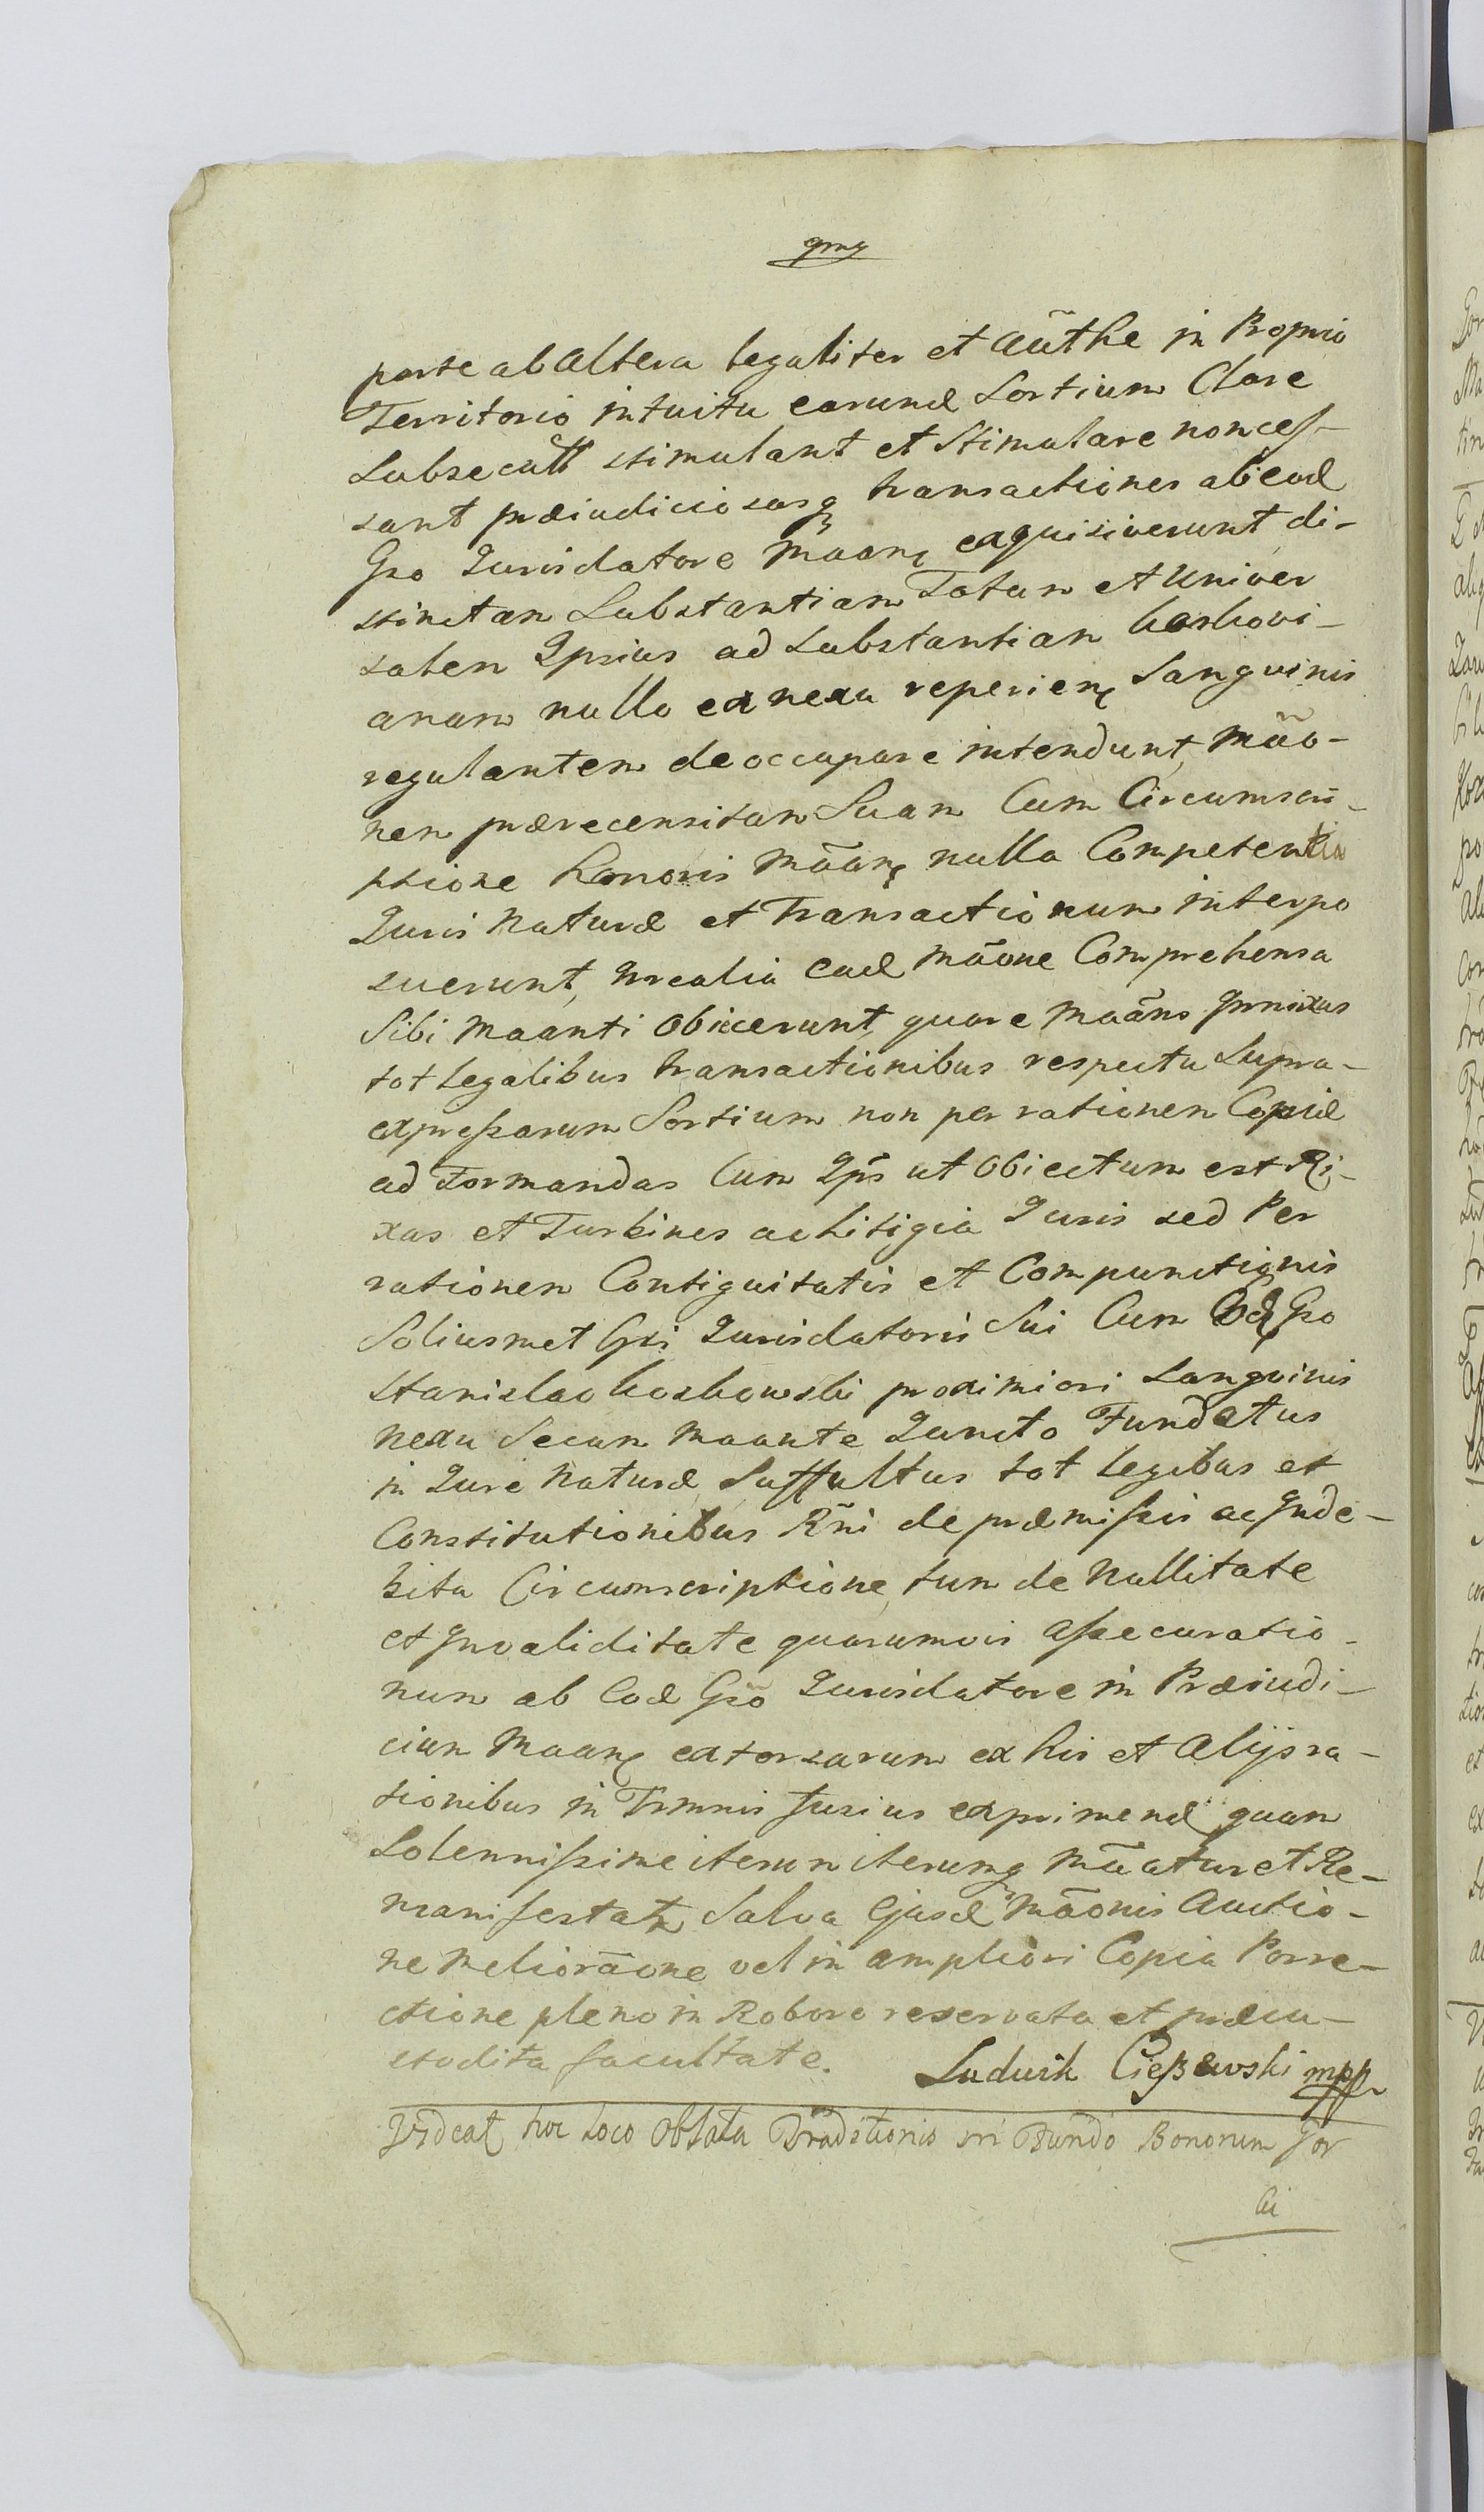 parte ab altera legaliter et aũthe in Proprio
Territorio intuitu earund Sortium Clare
Subsecutt stimulant et Stimulare non ces-
sant præiudiciosasq transactiones ab eod
Gso Jurisdatore Maan exquisiverunt, di-
stinctam Substantiam Totam et Univer
salem Ipsius ad Substantiam Koskovi-
anam nullo ex nexu reperien Sangvinis
regulantem deoccupare intendunt, Mão-
nem prærecensitam Suam Cum Circumscri-
ptione honoris Mãan nulla Competentia
Juris Naturæ et Transactionum interpo
suerunt, irrealia ead Mãone Comprehensa
Sibi Maanti obiecerunt, quare Maãns Innixus
tot Legalibus transactionibus respectu Supra-
expressarum Sortium non per rationem Copiæ
ad Formandas Cum Ips ut Obiectum est Ri-
xas et Turbines ac litigia Juris sed Per
rationem Contiguitatis et Compunctionis
Soliusmet Gsi Jurisdatoris Sui Cum Gso
Stanislao Koskowski proximiori Sangvinis
nexu Secum Maante Juncto Fundatus
in Jure Naturæ Suffultus tot Legibus et
Constitutionibus Rñi de præmissis ac Inde-
bita Circumscriptione, tum de Nullitate
et Invaliditate quarumvis Assecuratio-
num ab Eod Gsõ Jurisdatore in Præiudi-
cium Maan extorsarum ex his et Alijs ra-
tionibus in Trmnis fusius exprimend quam
Solennissime iterum iterumq Mãatur et Re-
manifestat Salva Ejusd Mãonis Auctio-
ne Meliorãone vel in ampliori Copia Porre-
ctione pleno in Robore reservata et præcu-
stodita facultate.
Ludwik Cieszewski mpp
Videat hoc Loco Oblata Traditionis in Fundo Bonorum Gor
ki